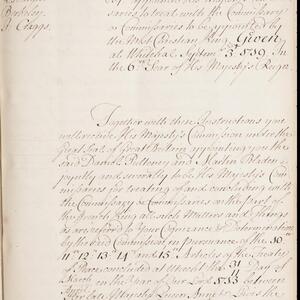 Berkeley.
J. Craggs.
saries to treat with the Commissary
or Commissaries to be appointed by
the Most Christian King. Given
at Whitehal Septem.r 3.d 1719. In
the 6.th Year of His Majesty's Reign.
Together with these Instructions you
will receive His Majesty's Commission under the
Great Seal of Great Britain appointing you the
said Daniel Pulteney and Martin Bladen
joyntly and severally to be His Majesty's Com
missaries for treating of and concluding with
the Commissary or Commissaries on the part of
the French King all such Matters and things
as are referred to Your Cognizance & Determination
by the said Commission in pursuance of the 10
11.th 12.th 13.th 14.th and 15.th Articles of the Treaty
of Peace concluded at Utrecht the 31 Day of
March in the Year of our Lord 1713 between
Her late Majesty Queen Anne